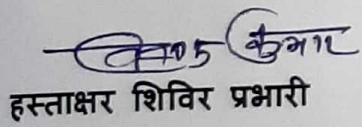 कुमार
हस्ताक्षर शिविर प्रभारी